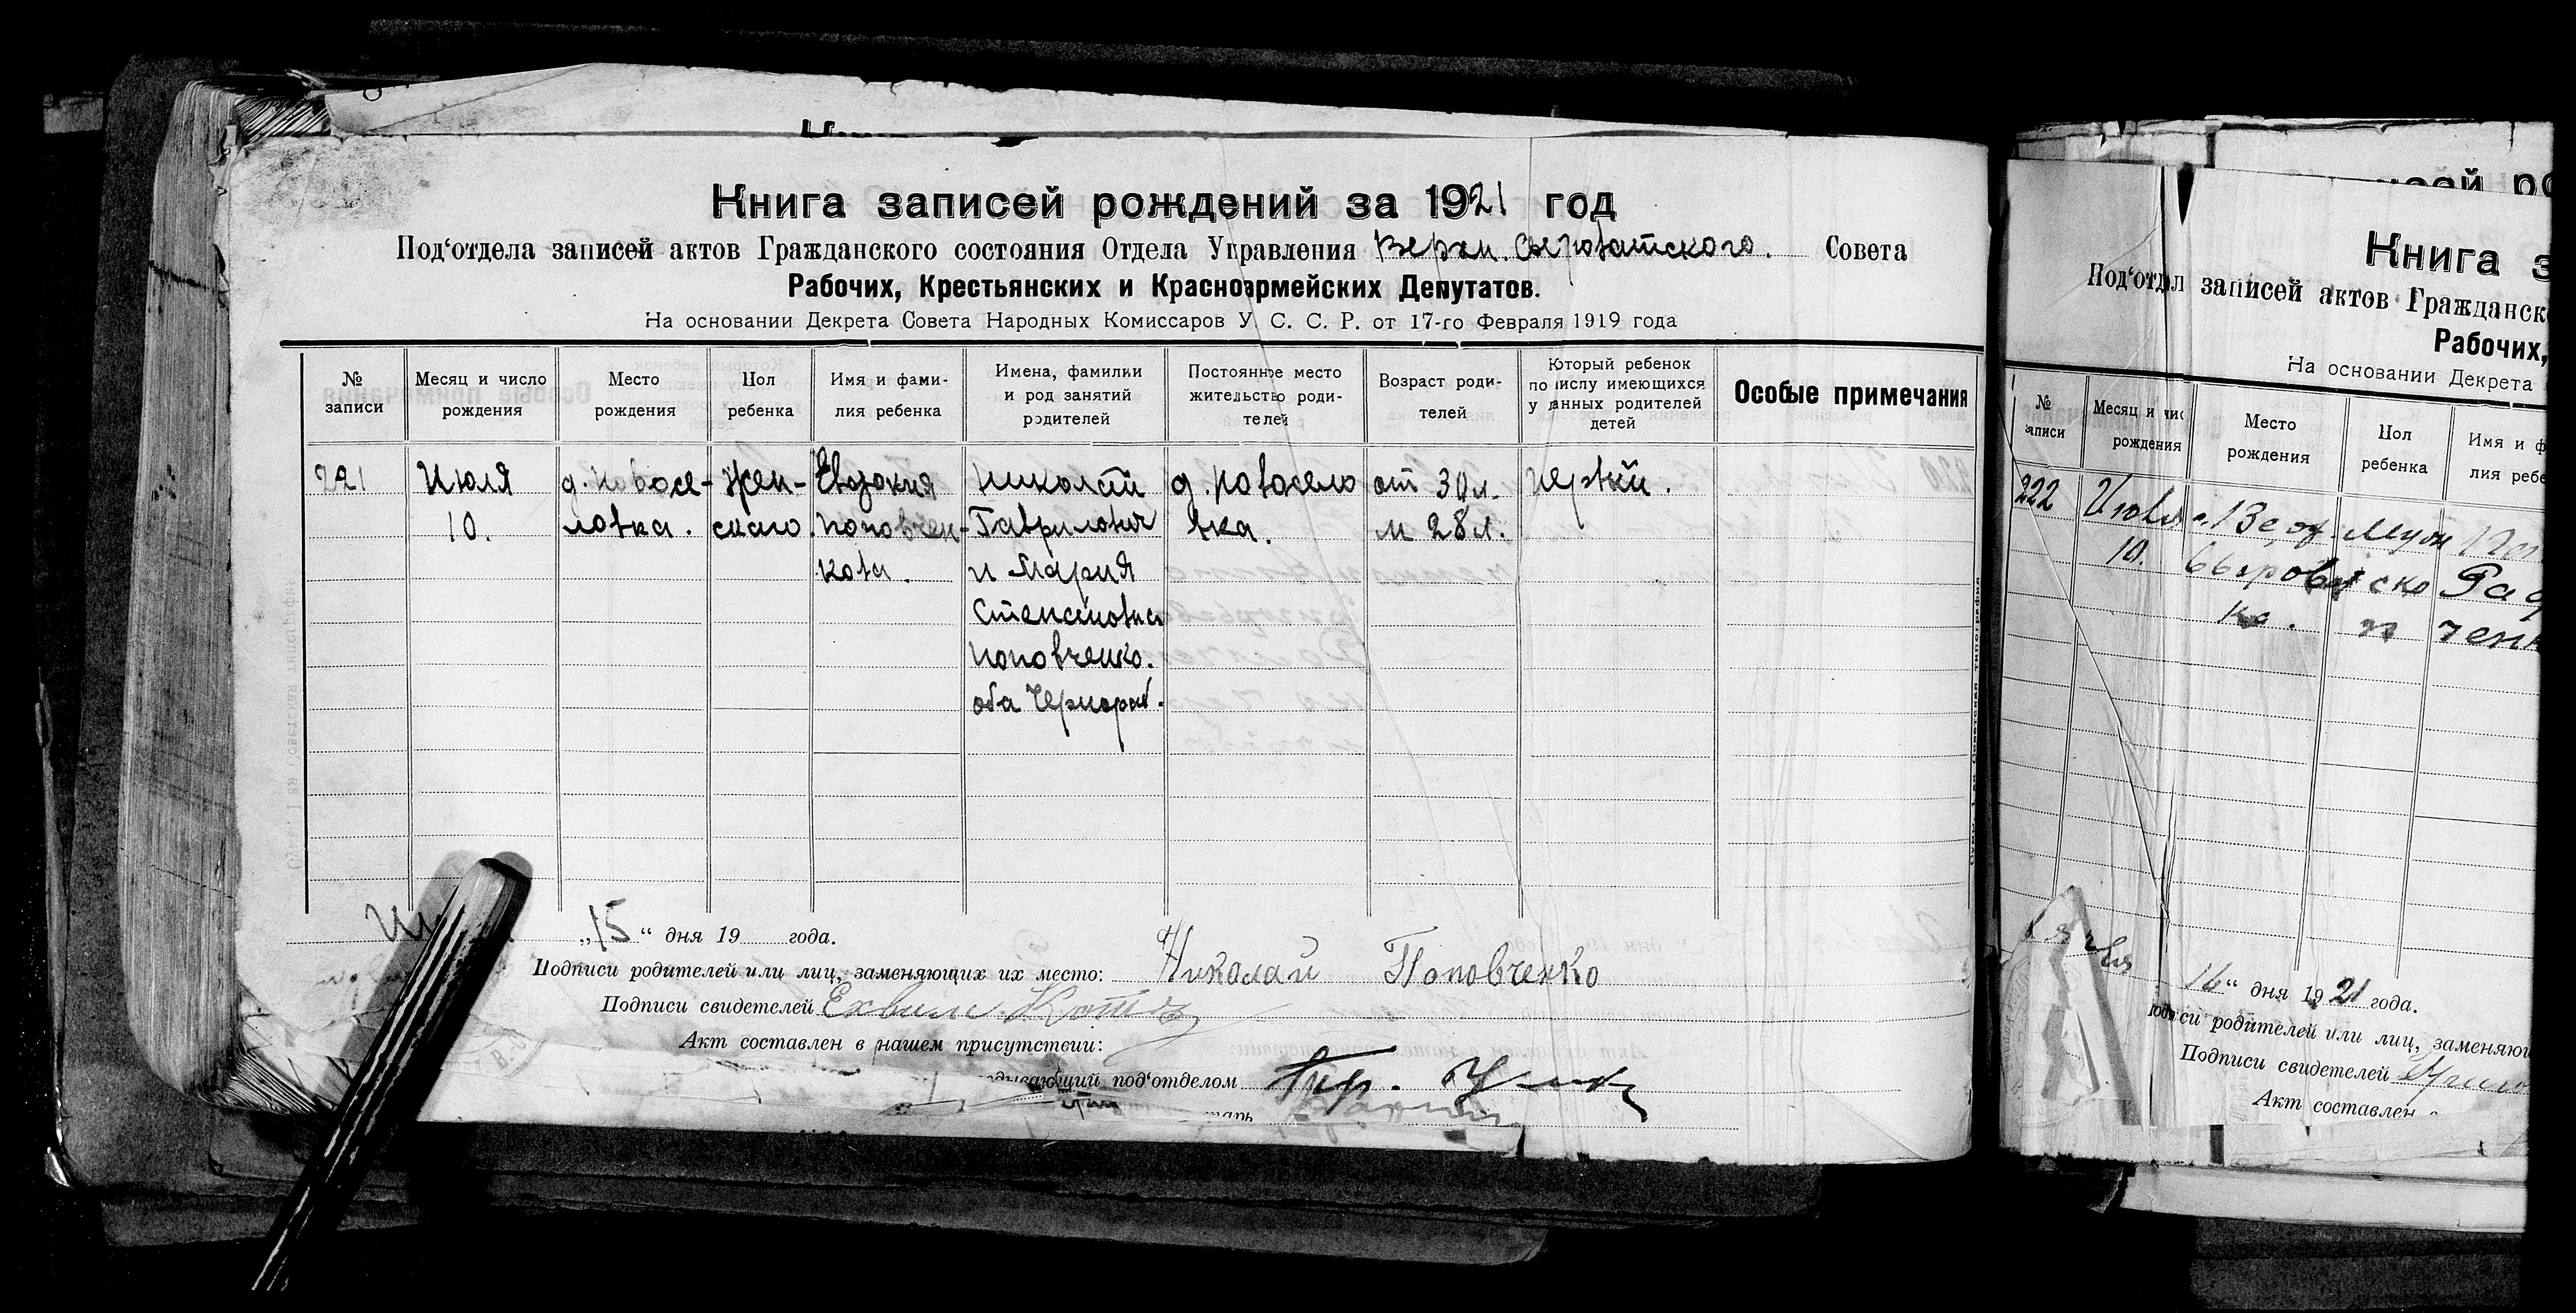 Книга записей рождений за 1921 год
Под'отдела записей актов Гражданского состояния Отдела Управления Верхн. Сыроватского. Совета
Рабочих, Крестьянских и Красноармейских Депутатов.
На основании Декрета Совета Народных Комиссаров У. С. С. Р. от 17-го Февраля 1919 года
№ записи
Месяц и число рождения
Место рождения
Пол ребенка
Имя и фамилия ребенка
Имена, фамилии и род занятий родителей
Постоянное место жительство родителей
Возраст родителей
Который ребенок по числу имеющихся у данных родителей детей
Особые примечания
221 Июля д. Новосе- Жен- Евдокия Николай д. Новосело от 30 л. первый.
10. ловка. скаго Поповчен- Гаврилович вка. м 28 л.
кова. и Мария
Степановна
Поповченко.
оба Чернораб.
„15“ дня 19 года.
Подписи родителей или лиц, заменяющих их место: Николай Поповченко
Подписи свидетелей
Акт составлен в нашем присутствии:
под'отделом
Книга з
Под'отдел записей актов Гражданск
Рабочих,
На основании Декрета
№ записи
Месяц и чис рождения
Место рождения
Пол ребенка
Имя и ф лия ребе
222 Июля
10.
16“ дня 1921 года.
родителей или лиц, заменяющ
Подписи свидетелей
Акт составлен